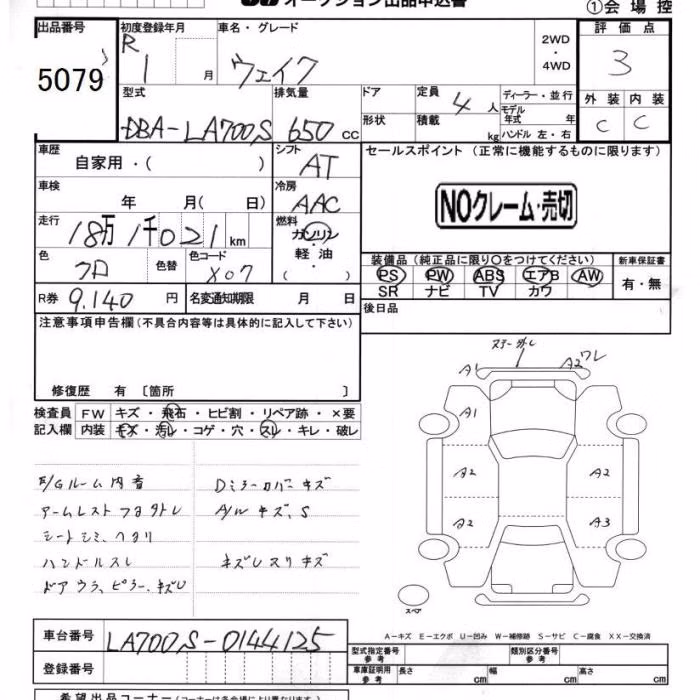 オークション出品申込書
①会場控
出品番号 初度登録年月 車名・グレード 評価点
5079 R 1 月 ウェイク 2WD・4WD 3
型式 排気量 ドア 定員 4人 ディーラー・並行 外装 内装
モデル年式 年
DBA-LA700S 650cc 形状 積載 kg ハンドル 左・右 C C
車歴 自家用・( ) シフト AT セールスポイント (正常に機能するものに限ります)
車検 年 月( 日) 冷房 AAC NOクレーム・売切
走行 18万1千021km 燃料 ガソリン・軽油・( )
色 クロ 色替 色コード X07 装備品(純正品に限り○をつけてください) 新車保証書
PS PW ABS エアB AW 有・無
SR ナビ TV カワ
R券 9.140円 名変通知期限 月 日 後日品
注意事項申告欄(不具合内容等は具体的に記入して下さい)
修復歴 有 〔箇所 〕
検査員 FW キズ・飛石・ヒビ割・リペア跡・×要
記入欄 内装 キズ・汚レ・コゲ・穴・スレ・キレ・破レ
F/Gルーム内音 Dミラーカバーキズ
アームレストフタヨゴレ A/Wキズ、S
シートシミ、ヘタリ
ハンドルスレ キズレスリキズ
ドアウラ、ピラー、キズU
A1 A2ワレ
A1
A2 A2
A2 A3
スペア
A-キズ E-エクボ U-凹み W-補修跡 S-サビ C-腐食 XX-交換済
車台番号 LA700S-0144125 型式指定番号 参考 類別区分番号 参考
登録番号 車庫証明用 参考 長さ cm 幅 cm 高さ cm
希望出品コーナー(コーナーは各会場により異なります)